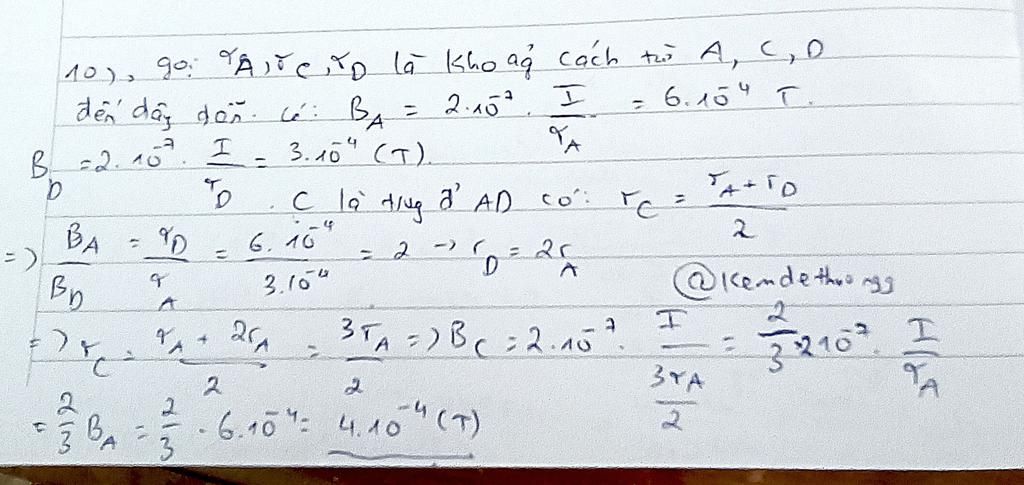 10), gọi r_A, r_C, r_D là khoảg cách từ A, C, D
đến dây dẫn. Có: B_A = 2.10^-7 . I/r_A = 6.10^-4 T.
B_D = 2.10^-7 . I/r_D = 3.10^-4 (T).
. C là trug đ' AD có: r_C = (r_A + r_D)/2
=> B_A/B_D = r_D/r_A = 6.10^-4/3.10^-4 = 2 → r_D = 2r_A
@kemdethuongg
=> r_C = (r_A + 2r_A)/2 = 3r_A/2 => B_C = 2.10^-7 . I/(3r_A/2) = 2/3 . 2 10^-7 . I/r_A
= 2/3 B_A = 2/3 . 6.10^-4 = 4.10^-4 (T)